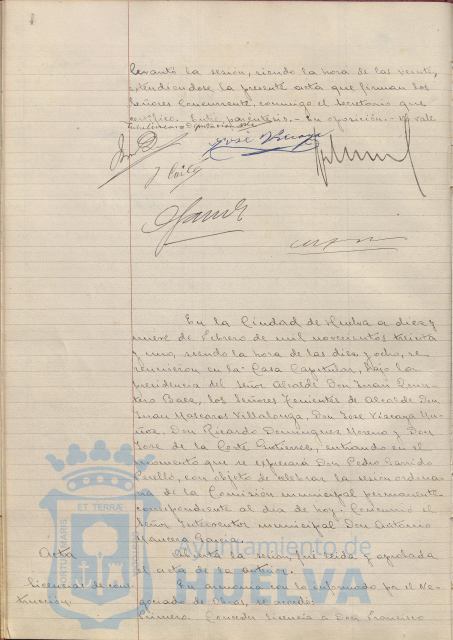 levantó la sesión, siendo la hora de las veinte,
extendiendose la presente acta que firman los
Señores Concurrente, conmigo el Secretario que
certifico. Entre parentesis. - en oposición - no vale
José Vizcaya
En la Ciudad de Huelva a diez y
nueve de Febrero de mil novecientos treinta
y uno, siendo la hora de las diez y ocho, se
reunieron en la Casa Capitular, bajo la
presidencia del Señor Alcalde Don Juan Quin-
tero Baez, los Señores Tenientes de Alcalde Don
Juan Mascaros Villalonga, Don José Vizcaya Mu-
ñoz, Don Ricardo Dominguez Moreno y Don
José de la Corte Gutierrez, entrando en el
momento que se expresará Don Pedro Garrido
Perelló, con objeto de celebrar la sesión ordina-
ria de la Comisión municipal permanente
correspondiente al día de hoy. Concurrió el
Señor Interventor municipal Don Antonio
Mancera García.
Acta Abierta la sesión, fue leida y aprobada
el acta de la anterior.
Licencias de cons- En armonia con lo informado por el Ne-
trucción. gociado de Obras, se acordó:
Primero. Conceder licencia a Don Francisco
ET TERRÆ
PORTUS MARIS
Ayuntamiento de
HUELVA